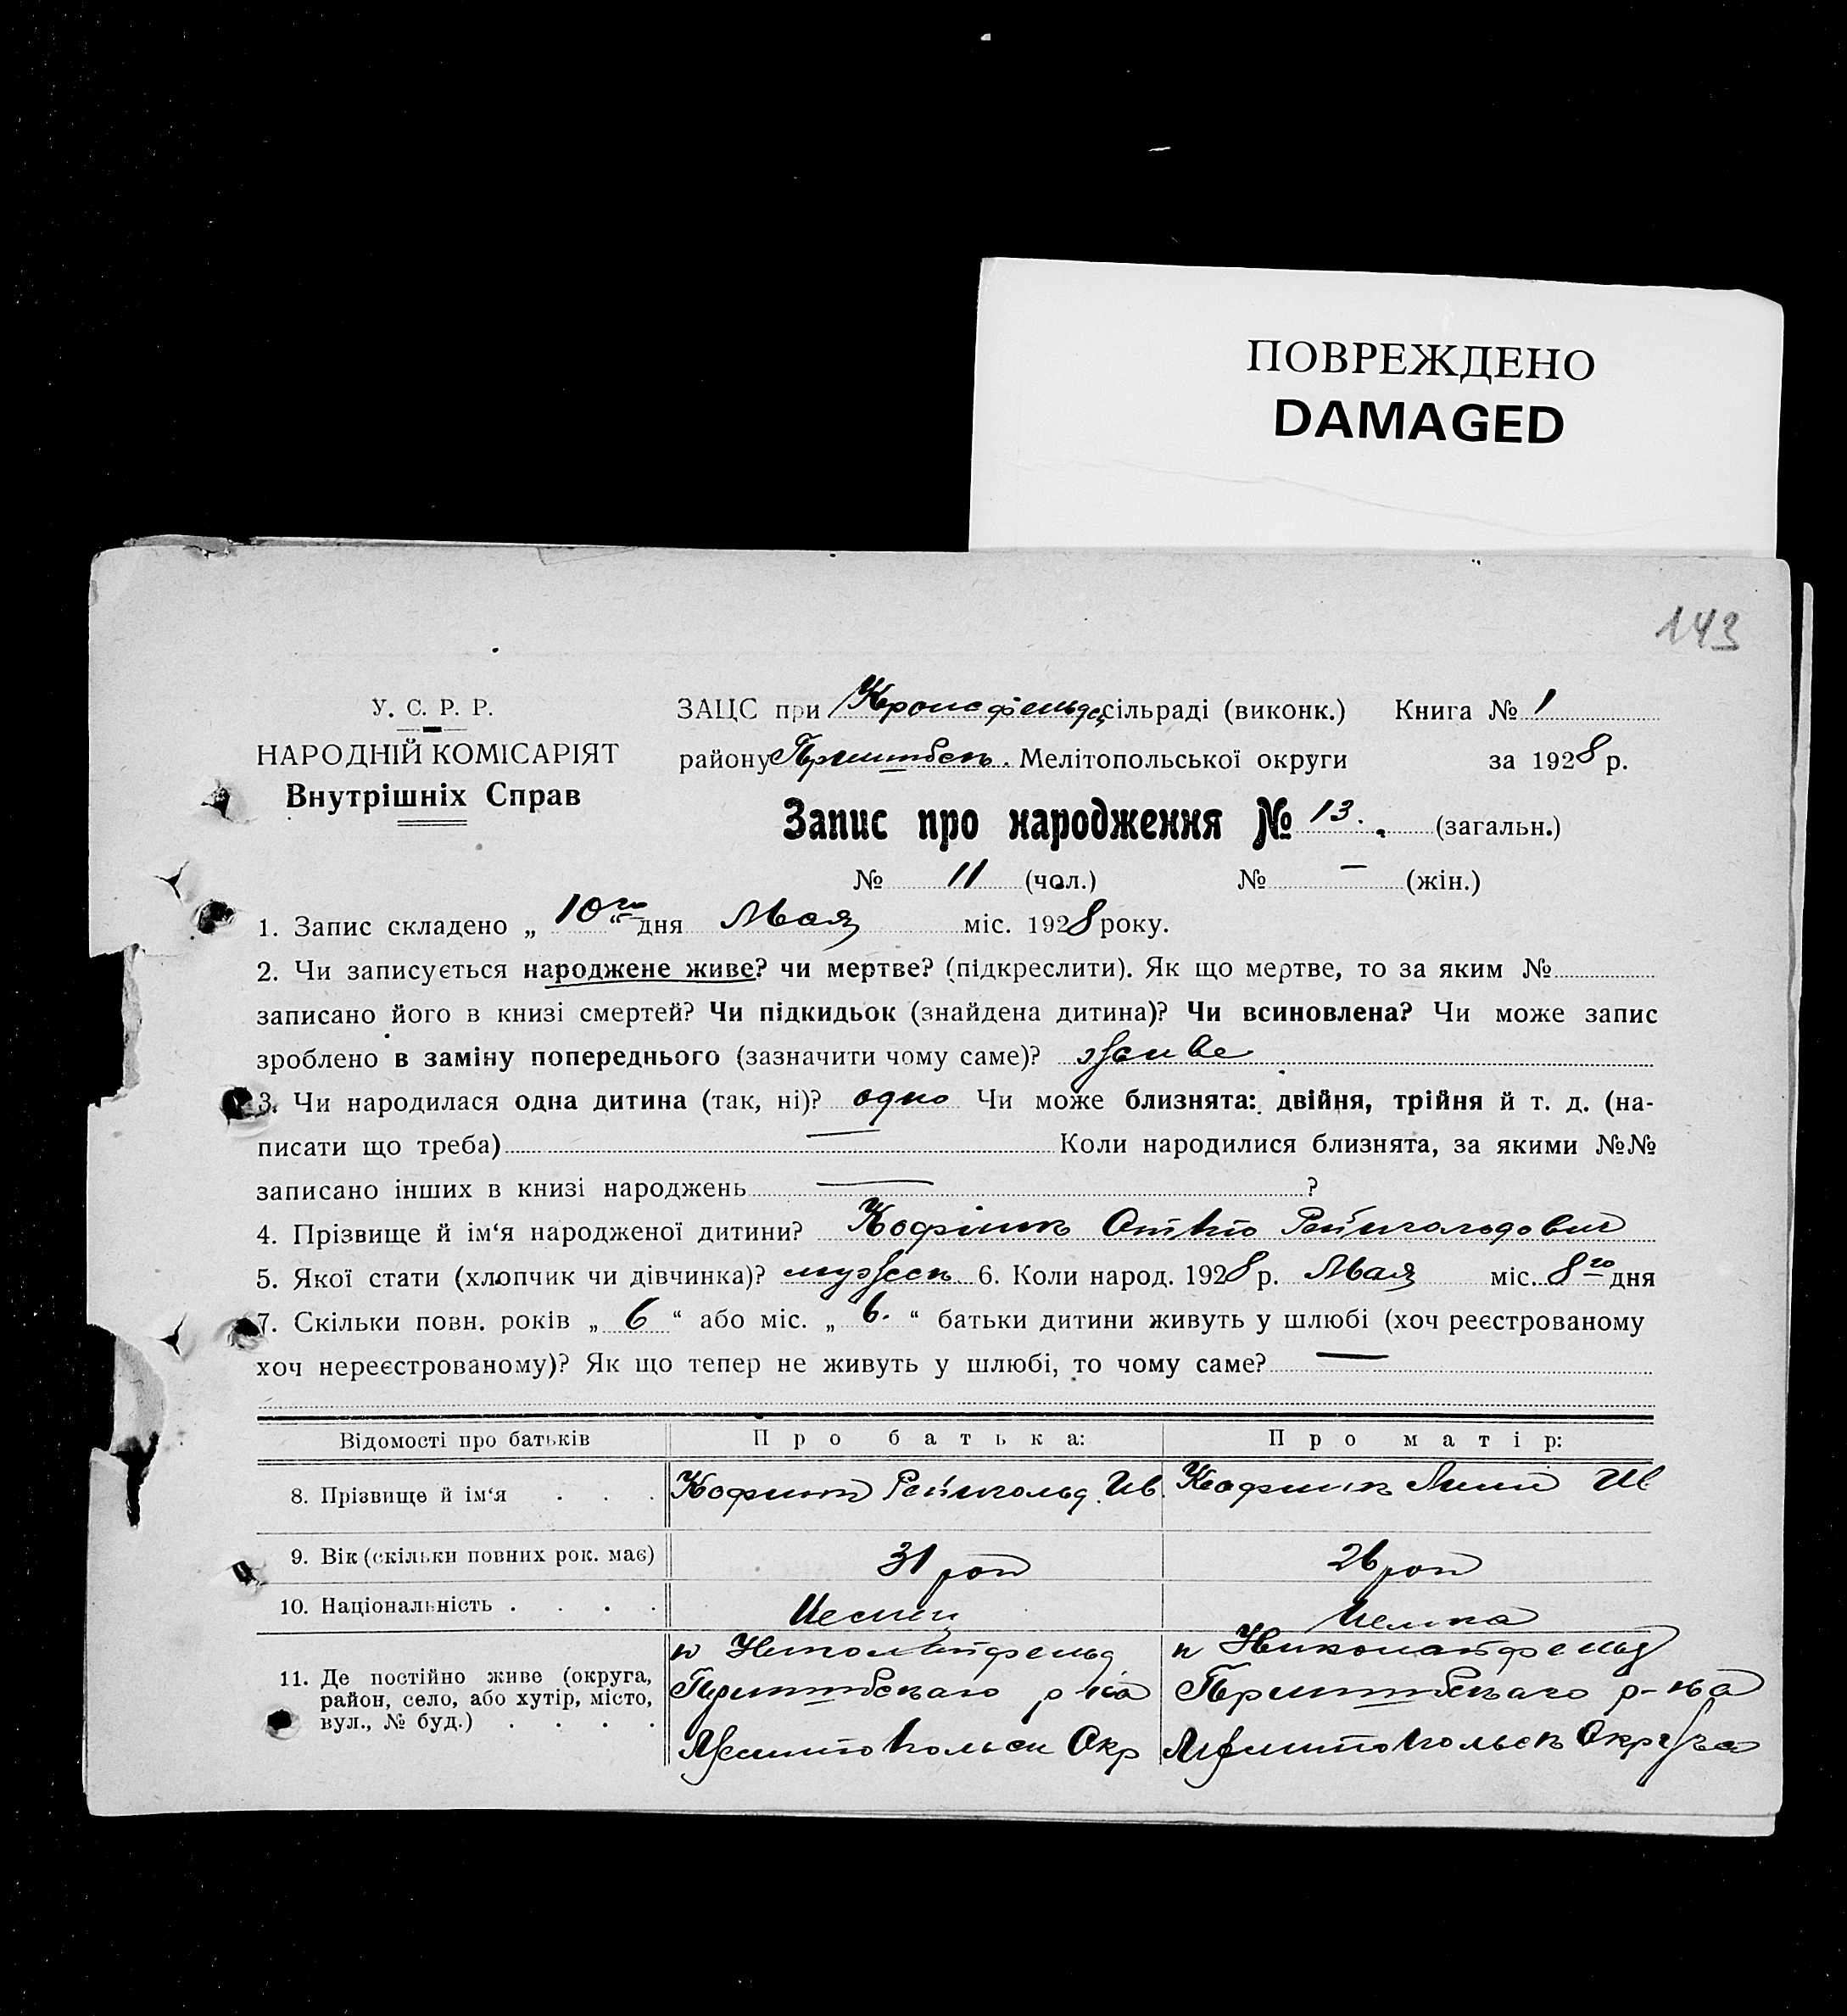 ПОВРЕЖДЕНО
DAMAGED
143
У. С. Р. Р.
НАРОДНІЙ КОМІСАРІЯТ
Внутрішніх Справ
ЗАЦС при Кронсфельдс. сільраді (виконк.) Книга № 1
району Пришибск. Мелітопольської округи за 1928 р.
Запис про народження № 13. (загальн.)
№ 11 (чол.) № — (жін.)
1. Запис складено „ 10го “ дня Мая міс. 1928 року.
2. Чи записується народжене живе? чи мертве? (підкреслити). Як що мертве, то за яким №
записано його в книзі смертей? Чи підкидьок (знайдена дитина)? Чи всиновлена? Чи може запис
зроблено в заміну попереднього (зазначити чому саме)? живе
3. Чи народилася одна дитина (так, ні)? одно Чи може близнята: двійня, трійня й т. д. (на-
писати що треба) — Коли народилися близнята, за якими №№
записано інших в книзі народжень — ?
4. Прізвище й ім‘я народженої дитини? Кофинк Отто Рейнгольдович
5. Якої стати (хлопчик чи дівчинка)? мужеск 6. Коли народ. 1928 р. Мая міс. 8го дня
7. Скільки повн. років „ 6 “ або міс. „ 6. “ батьки дитини живуть у шлюбі (хоч реєстрованому
хоч нереєстрованому)? Як що тепер не живуть у шлюбі, то чому саме? —
Відомості про батьків Про батька: Про матір:
8. Прізвище й ім‘я . . . Кофинк Рейнгольд Ив. Кофинк Ив
9. Вік (скільки повних рок. має) 31 26
10. Національність . . . . Немец Немка
11. Де постійно живе (округа,
район, село, або хутір, місто,
вул., № буд.) . . . .
Николайфельд
Пришибскаго р-на
Мелитопольск Окр
Николайфельд
Пришибскаго р-на
Мелитопольск Округа